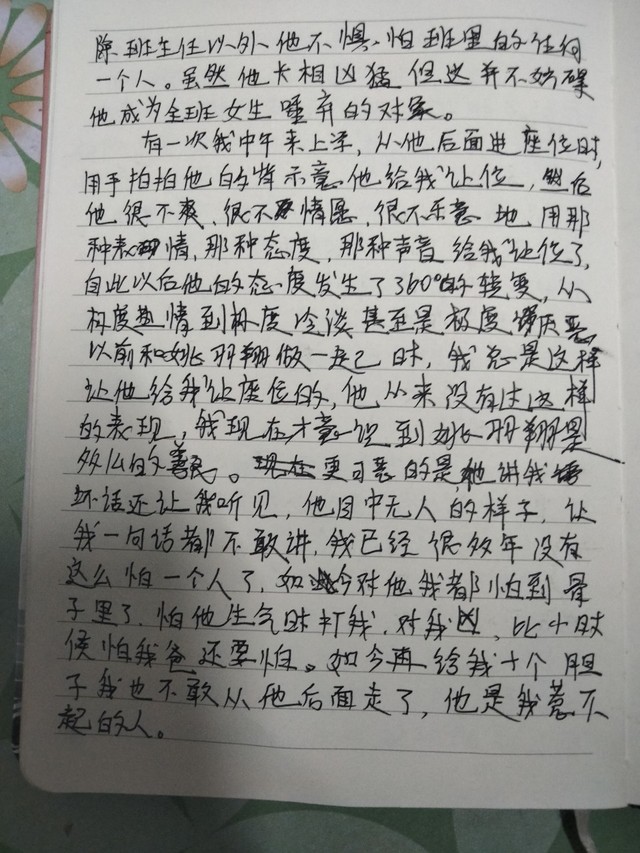 除班主任以外他不惧怕班里的任何
一个人。虽然他长相凶猛但这并不妨碍
他成为全班女生唾弃的对象。
有一次我中午来上学，从他后面进座位时，
用手拍拍他的背示意他给我让位，然后
他很不爽，很不情愿，很不乐意地用那
种表情，那种态度，那种声音给我让位了，
自此以后他的态度发生了360°的转变，从
极度热情到极度冷淡甚至是极度厌恶
以前和姚羽翔做一起时，我总是这样
让他给我让座位的，他从来没有过这样
的表现，我现在才意识到姚羽翔是
多么的善良。更可恶的是他讲我
坏话还让我听见，他目中无人的样子，让
我一句话都不敢讲，我已经很多年没有
这么怕一个人了，如今对他我都怕到骨
子里了，怕他生气时打我，对我凶，比小时
候怕我爸还要怕。如今再给我十个胆
子我也不敢从他后面走了，他是我惹不
起的人。